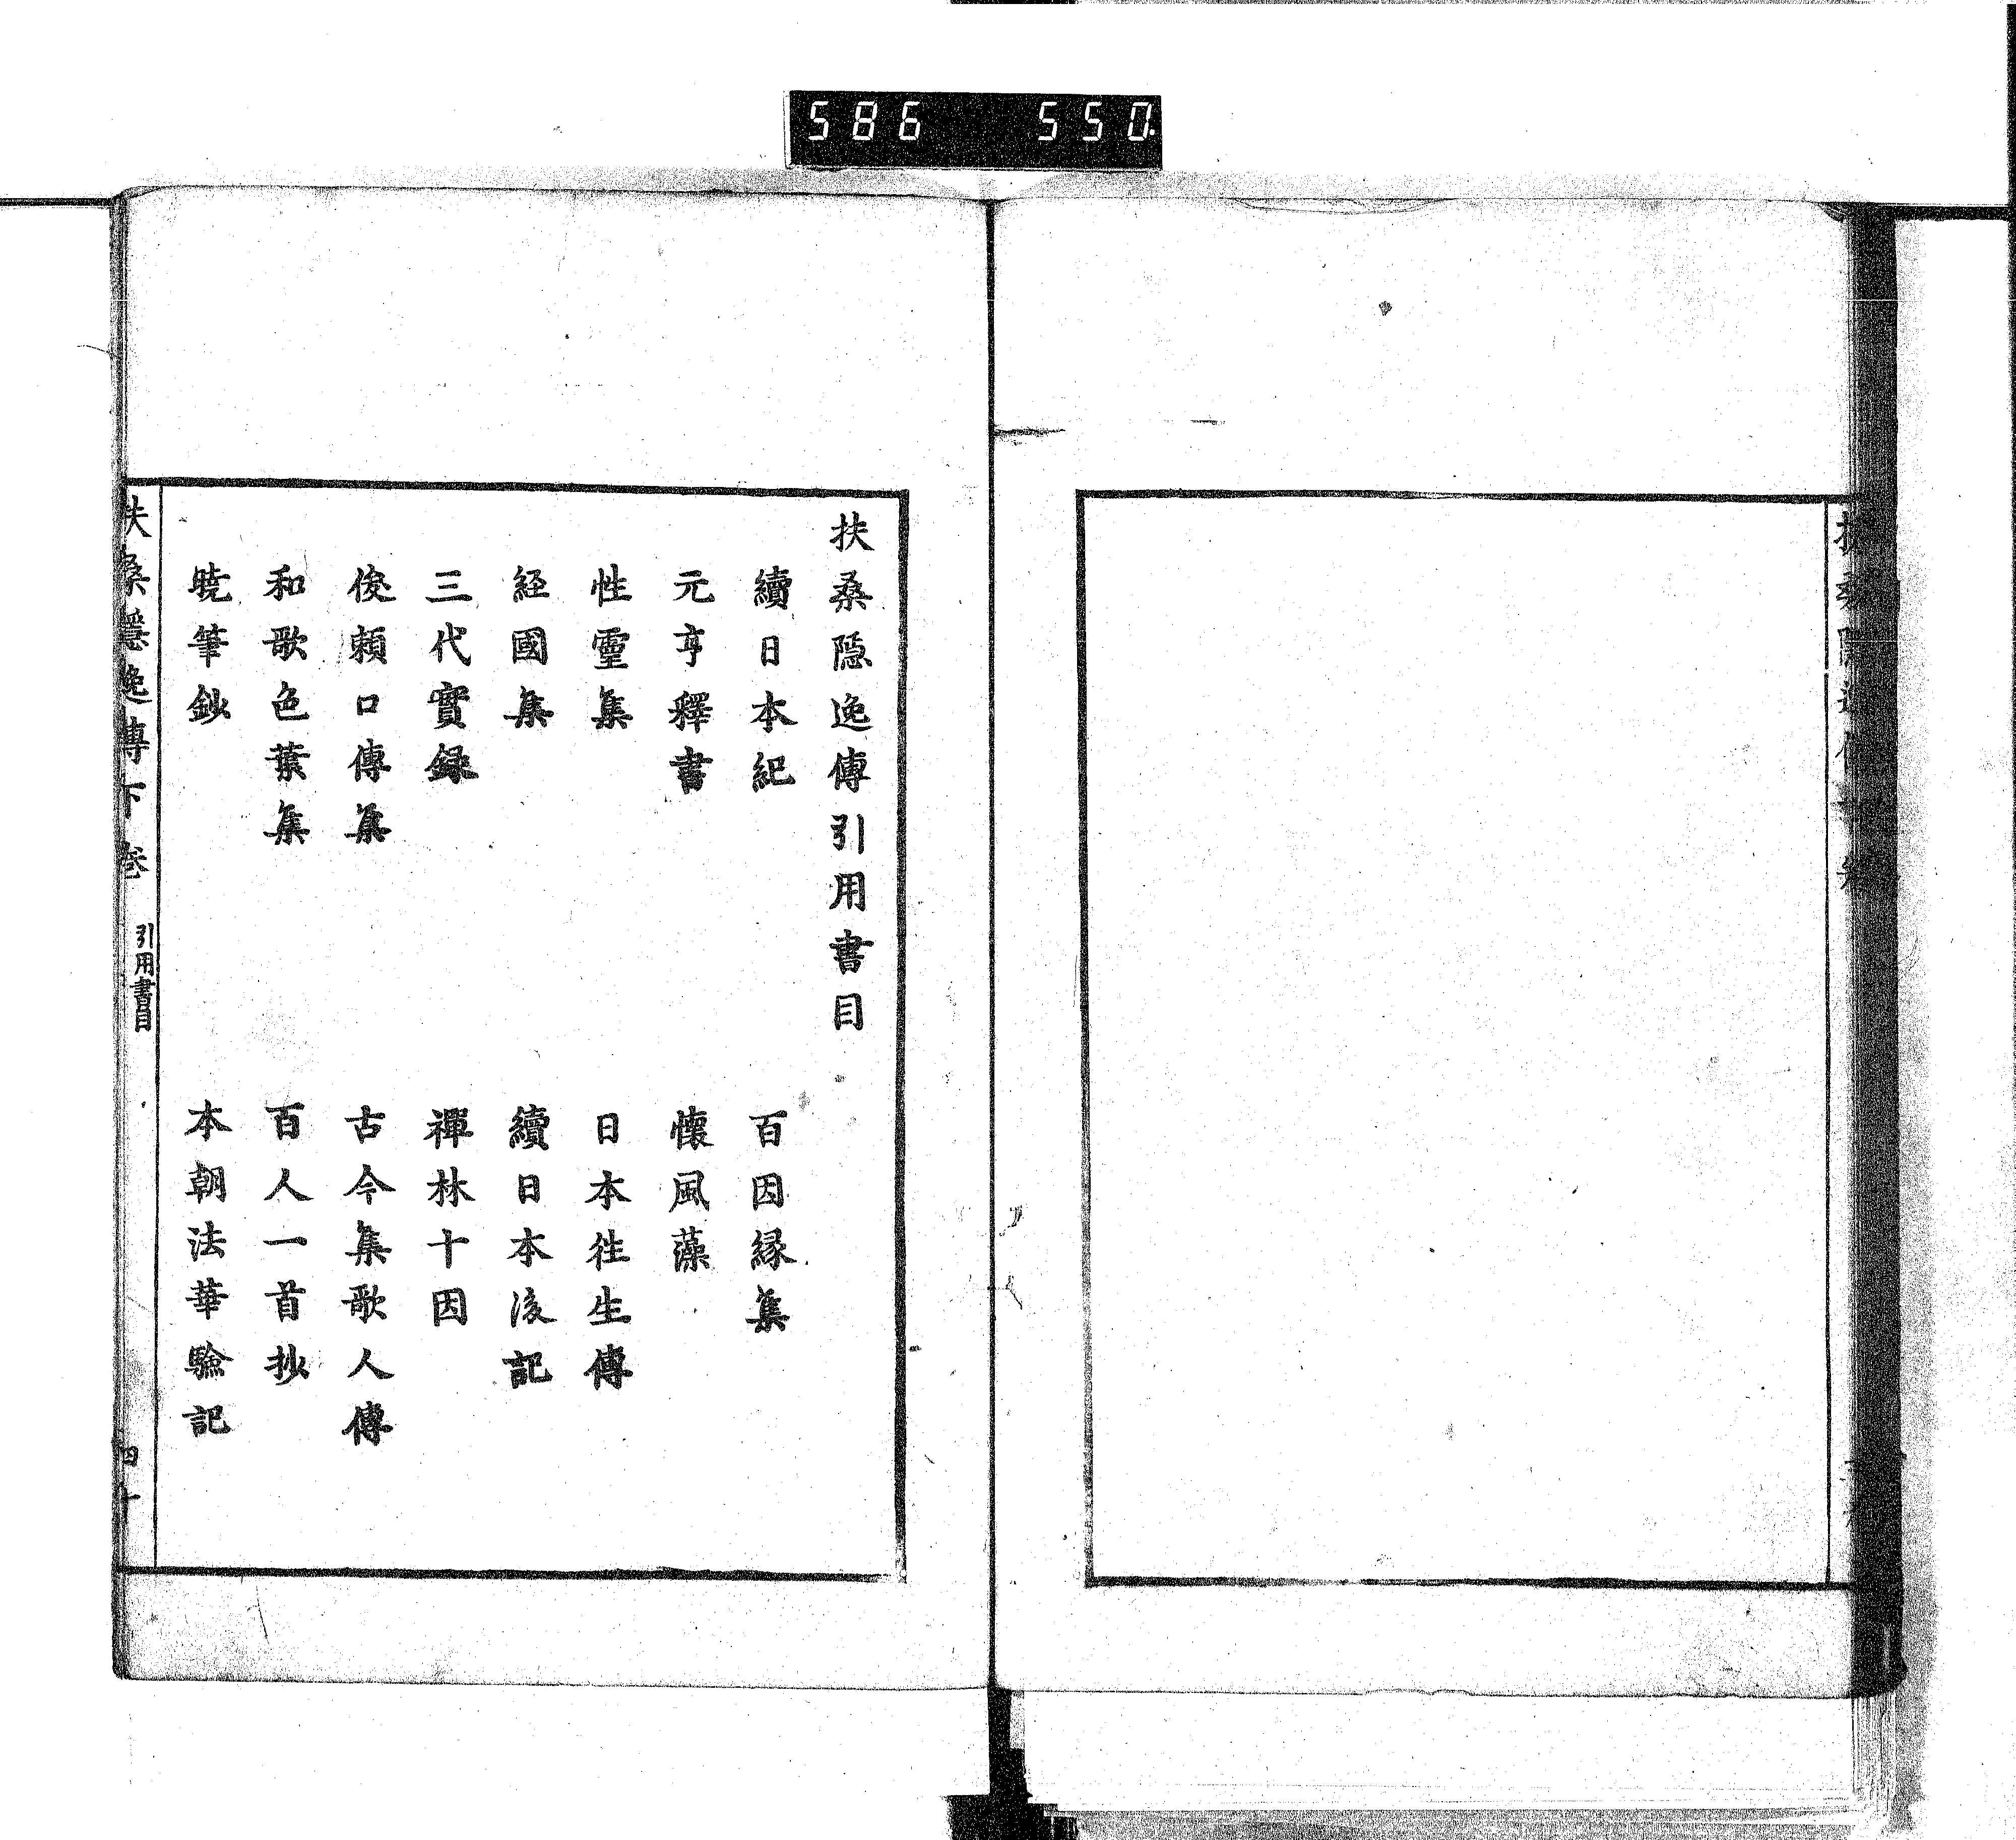 586 550.
扶桑隱逸傳引用書目
續日本紀 百因縁集
元亨釋書 懷風藻
性靈集 日本往生傳
経國集 續日本後記
三代實録 禪林十因
俊頼口傳集 古今集歌人傳
和歌色葉集 百人一首抄
暁筆鈔 本朝法華驗記
扶桑隱逸傳下巻 引用書目 四十